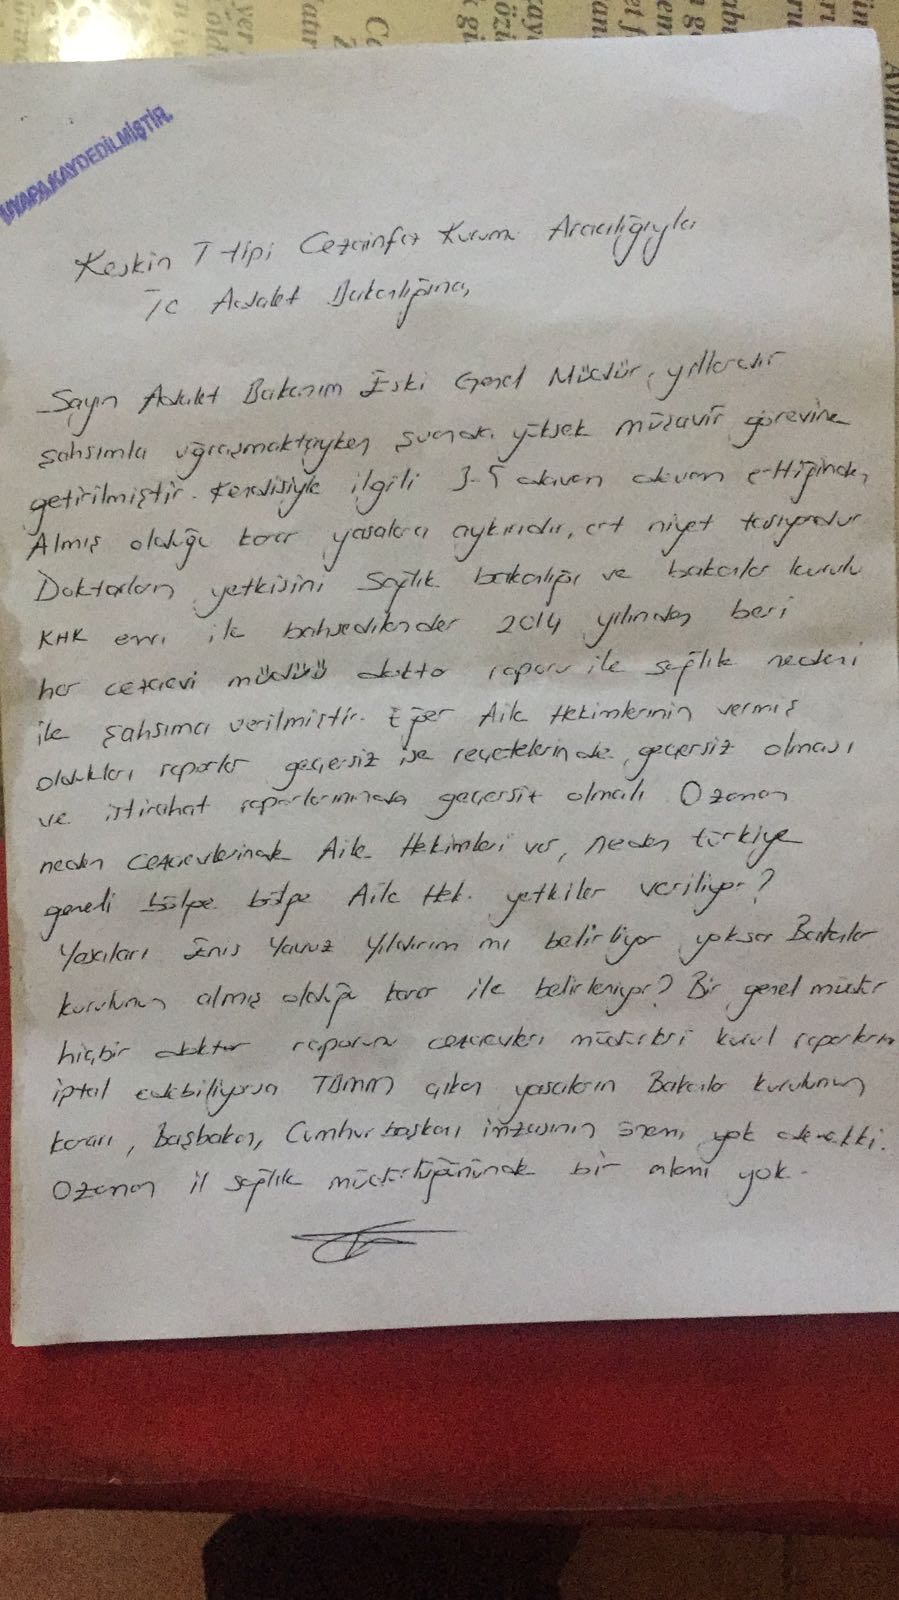 UYAPA KAYDEDİLMİŞTİR.
Keskin T tipi Cezainfaz Kurumu Aracılığıyla
Tc Adalet Bakanlığına,
Sayın Adalet Bakanım Eski Genel Müdür, yıllardır
şahsımla uğraşmaktayken şuanda yüksek müşavir görevine
getirilmiştir. Kendisiyle ilgili 3-5 davam devam ettiğinden
Almış olduğu karar yasalara aykırıdır, art niyet taşıyordur
Doktorların yetkisini Sağlık bakanlığı ve bakanlar kurulu
KHK emri ile 2014 yılından beri
her cezaevi müdürü doktor raporu ile sağlık nedeni
ile şahsıma verilmiştir. Eğer Aile Hekimlerinin vermiş
oldukları raporlar geçersiz ise reçetelerinde geçersiz olması
ve istirahat raporlarınında geçersiz olmalı Ozaman
neden cezaevlerinde Aile Hekimleri var, neden türkiye
geneli bölge bölge Aile Hek. yetkiler veriliyor?
Yasaları Enis Yavuz Yıldırım mı belirliyor yoksa Bakanlar
kurulunun almış olduğu karar ile belirleniyor? Bir genel müdür
hiçbir doktor raporunu cezaevleri müdürleri kurul raporlarını
iptal edebiliyorsa TBMM çıkan yasaların Bakanlar kurulunun
kararı, Başbakan, Cumhurbaşkanı imzasının önemi yok demekki.
Ozaman il sağlık müdürlüğününde bir alanı yok.